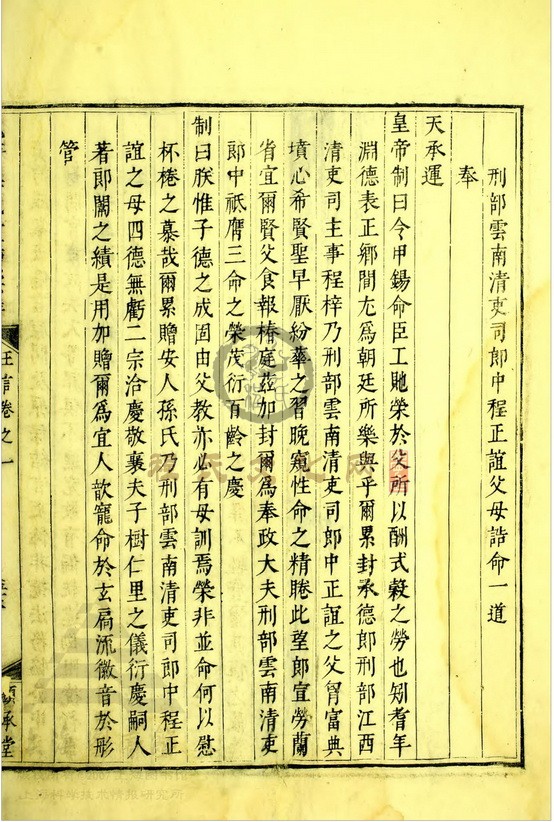 刑部雲南清吏司郎中程正誼父母誥命一道
奉
天承運
皇帝制曰令甲錫命臣工貤榮於父所以酬式穀之勞也矧耆年
淵德表正鄉閭尤爲朝廷所樂與乎爾累封承德郎刑部江西
清吏司主事程梓乃刑部雲南清吏司郎中正誼之父胷富典
墳心希賢聖早厭紛華之習晚窺性命之精睠此望郎宜勞蘭
省宜爾賢父食報椿庭茲加封爾爲奉政大夫刑部雲南清吏
郎中祇膺三命之榮茂衍百齡之慶
制曰朕惟子德之成固由父教亦必有母訓焉榮非並命何以慰
杯棬之慕哉爾累贈安人孫氏乃刑部雲南清吏司郎中程正
誼之母四德無虧二宗洽慶敬襄夫子樹仁里之儀衍慶嗣人
著郎闈之績是用加贈爾爲宜人歆寵命於玄扃流徽音於彤
管
王言卷之一
順承堂